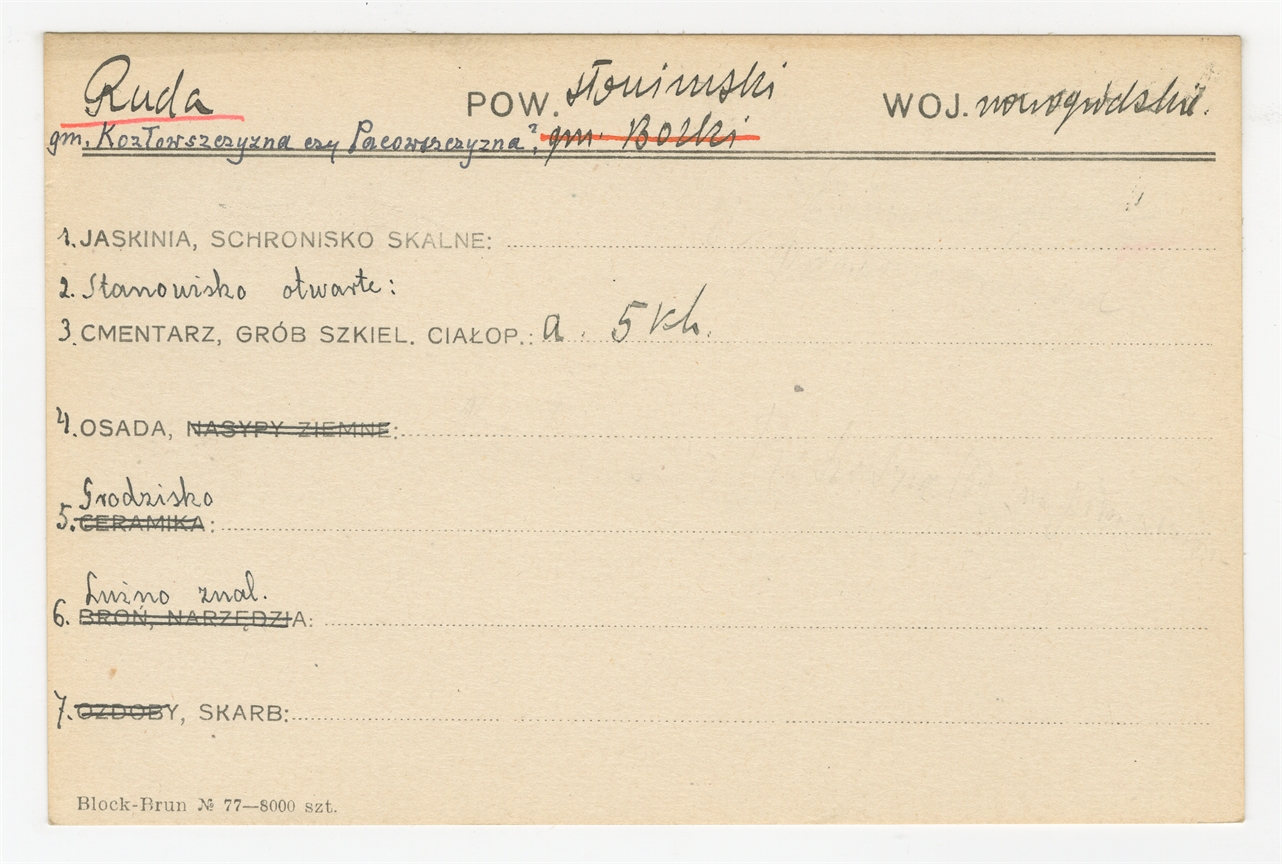 Ruda POW. słonimski WOJ. nowogródzkie.
gm. Kozłowszczyzna czy Pacowszczyzna? gm. Bołki
1. JASKINIA, SCHRONISKO SKALNE:
2. Stanowisko otwarte:
3. CMENTARZ, GRÓB SZKIEL. CIAŁOP.: a. 5 kh.
4. OSADA, NASYPY ZIEMNE:
Grodzisko
5. CERAMIKA:
Luźno znal.
6. BROŃ, NARZĘDZIA:
7. OZDOBY, SKARB:
Block-Brun № 77—8000 szt.